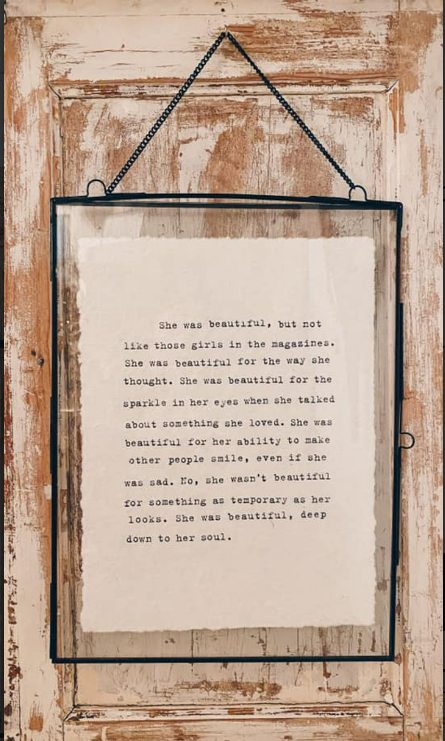 She was beautiful, but not
like those girls in the magazines.
She was beautiful for the way she
thought. She was beautiful for the
sparkle in her eyes when she talked
about something she loved. She was
beautiful for her ability to make
other people smile, even if she
was sad. No, she wasn't beautiful
for something as temporary as her
looks. She was beautiful, deep
down to her soul.